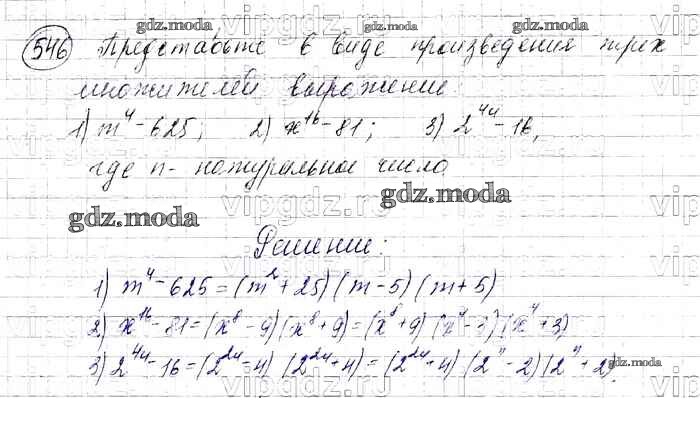 gdz.moda gdz.moda gdz.moda
546 Представьте в виде произведения трех
множителей выражение:
1) m⁴-625; 2) x¹⁶-81; 3) 2⁴ⁿ-16,
где n - натуральное число
gdz.moda vipgdz.ru gdz.moda
Решение:
1) m⁴-625=(m²+25)(m-5)(m+5)
2) x¹⁶-81=(x⁸-9)(x⁸+9)=(x⁸+9)(x⁴-3)(x⁴+3)
3) 2⁴ⁿ-16=(2²ⁿ-4)(2²ⁿ+4)=(2²ⁿ+4)(2ⁿ-2)(2ⁿ+2).
gdz.moda